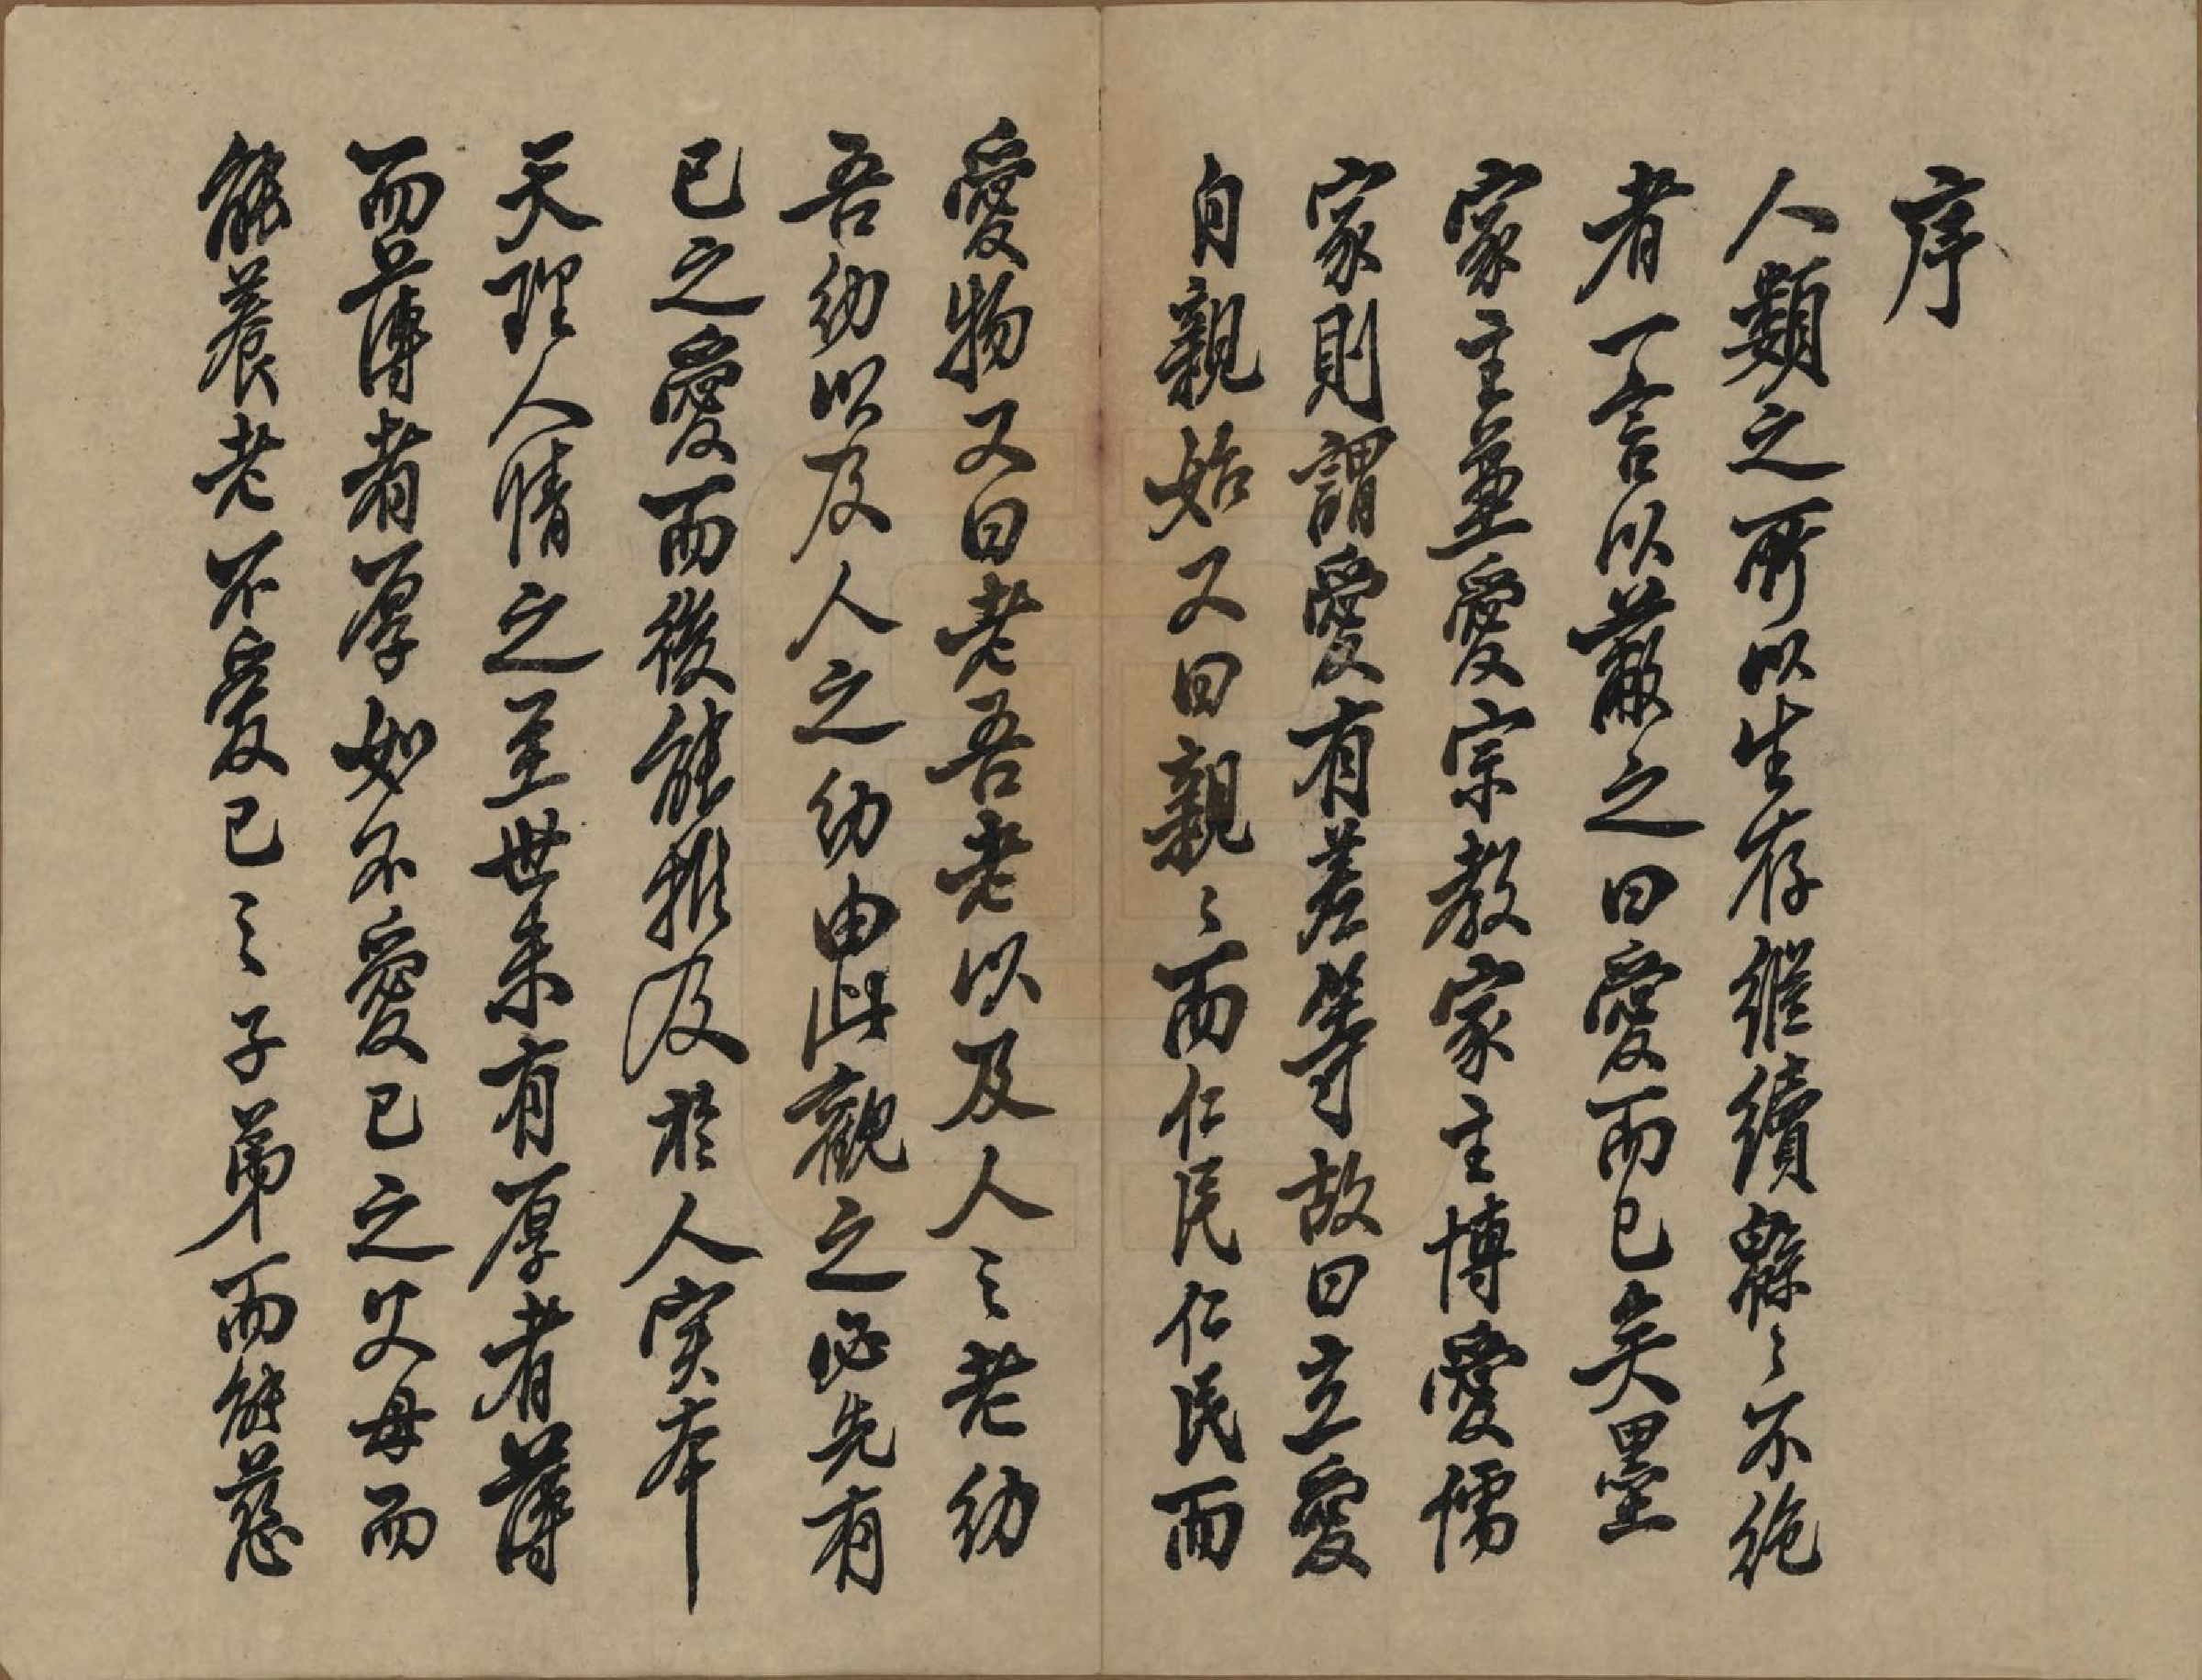 序
人類之所以生存繼續緜〻不絶
者一言以蔽之曰愛而已矣墨
家主兼愛宗教家主博愛儒
家則謂愛有差等故曰立愛
自親始又曰親〻而仁民仁民而
愛物又曰老吾老以及人之老幼
吾幼以及人之幼由此觀之必先有
已之愛而後能推及於人实本
天理人情之至世未有厚者薄
而薄者厚如不愛已之父母而
能養老不愛已之子弟而能慈